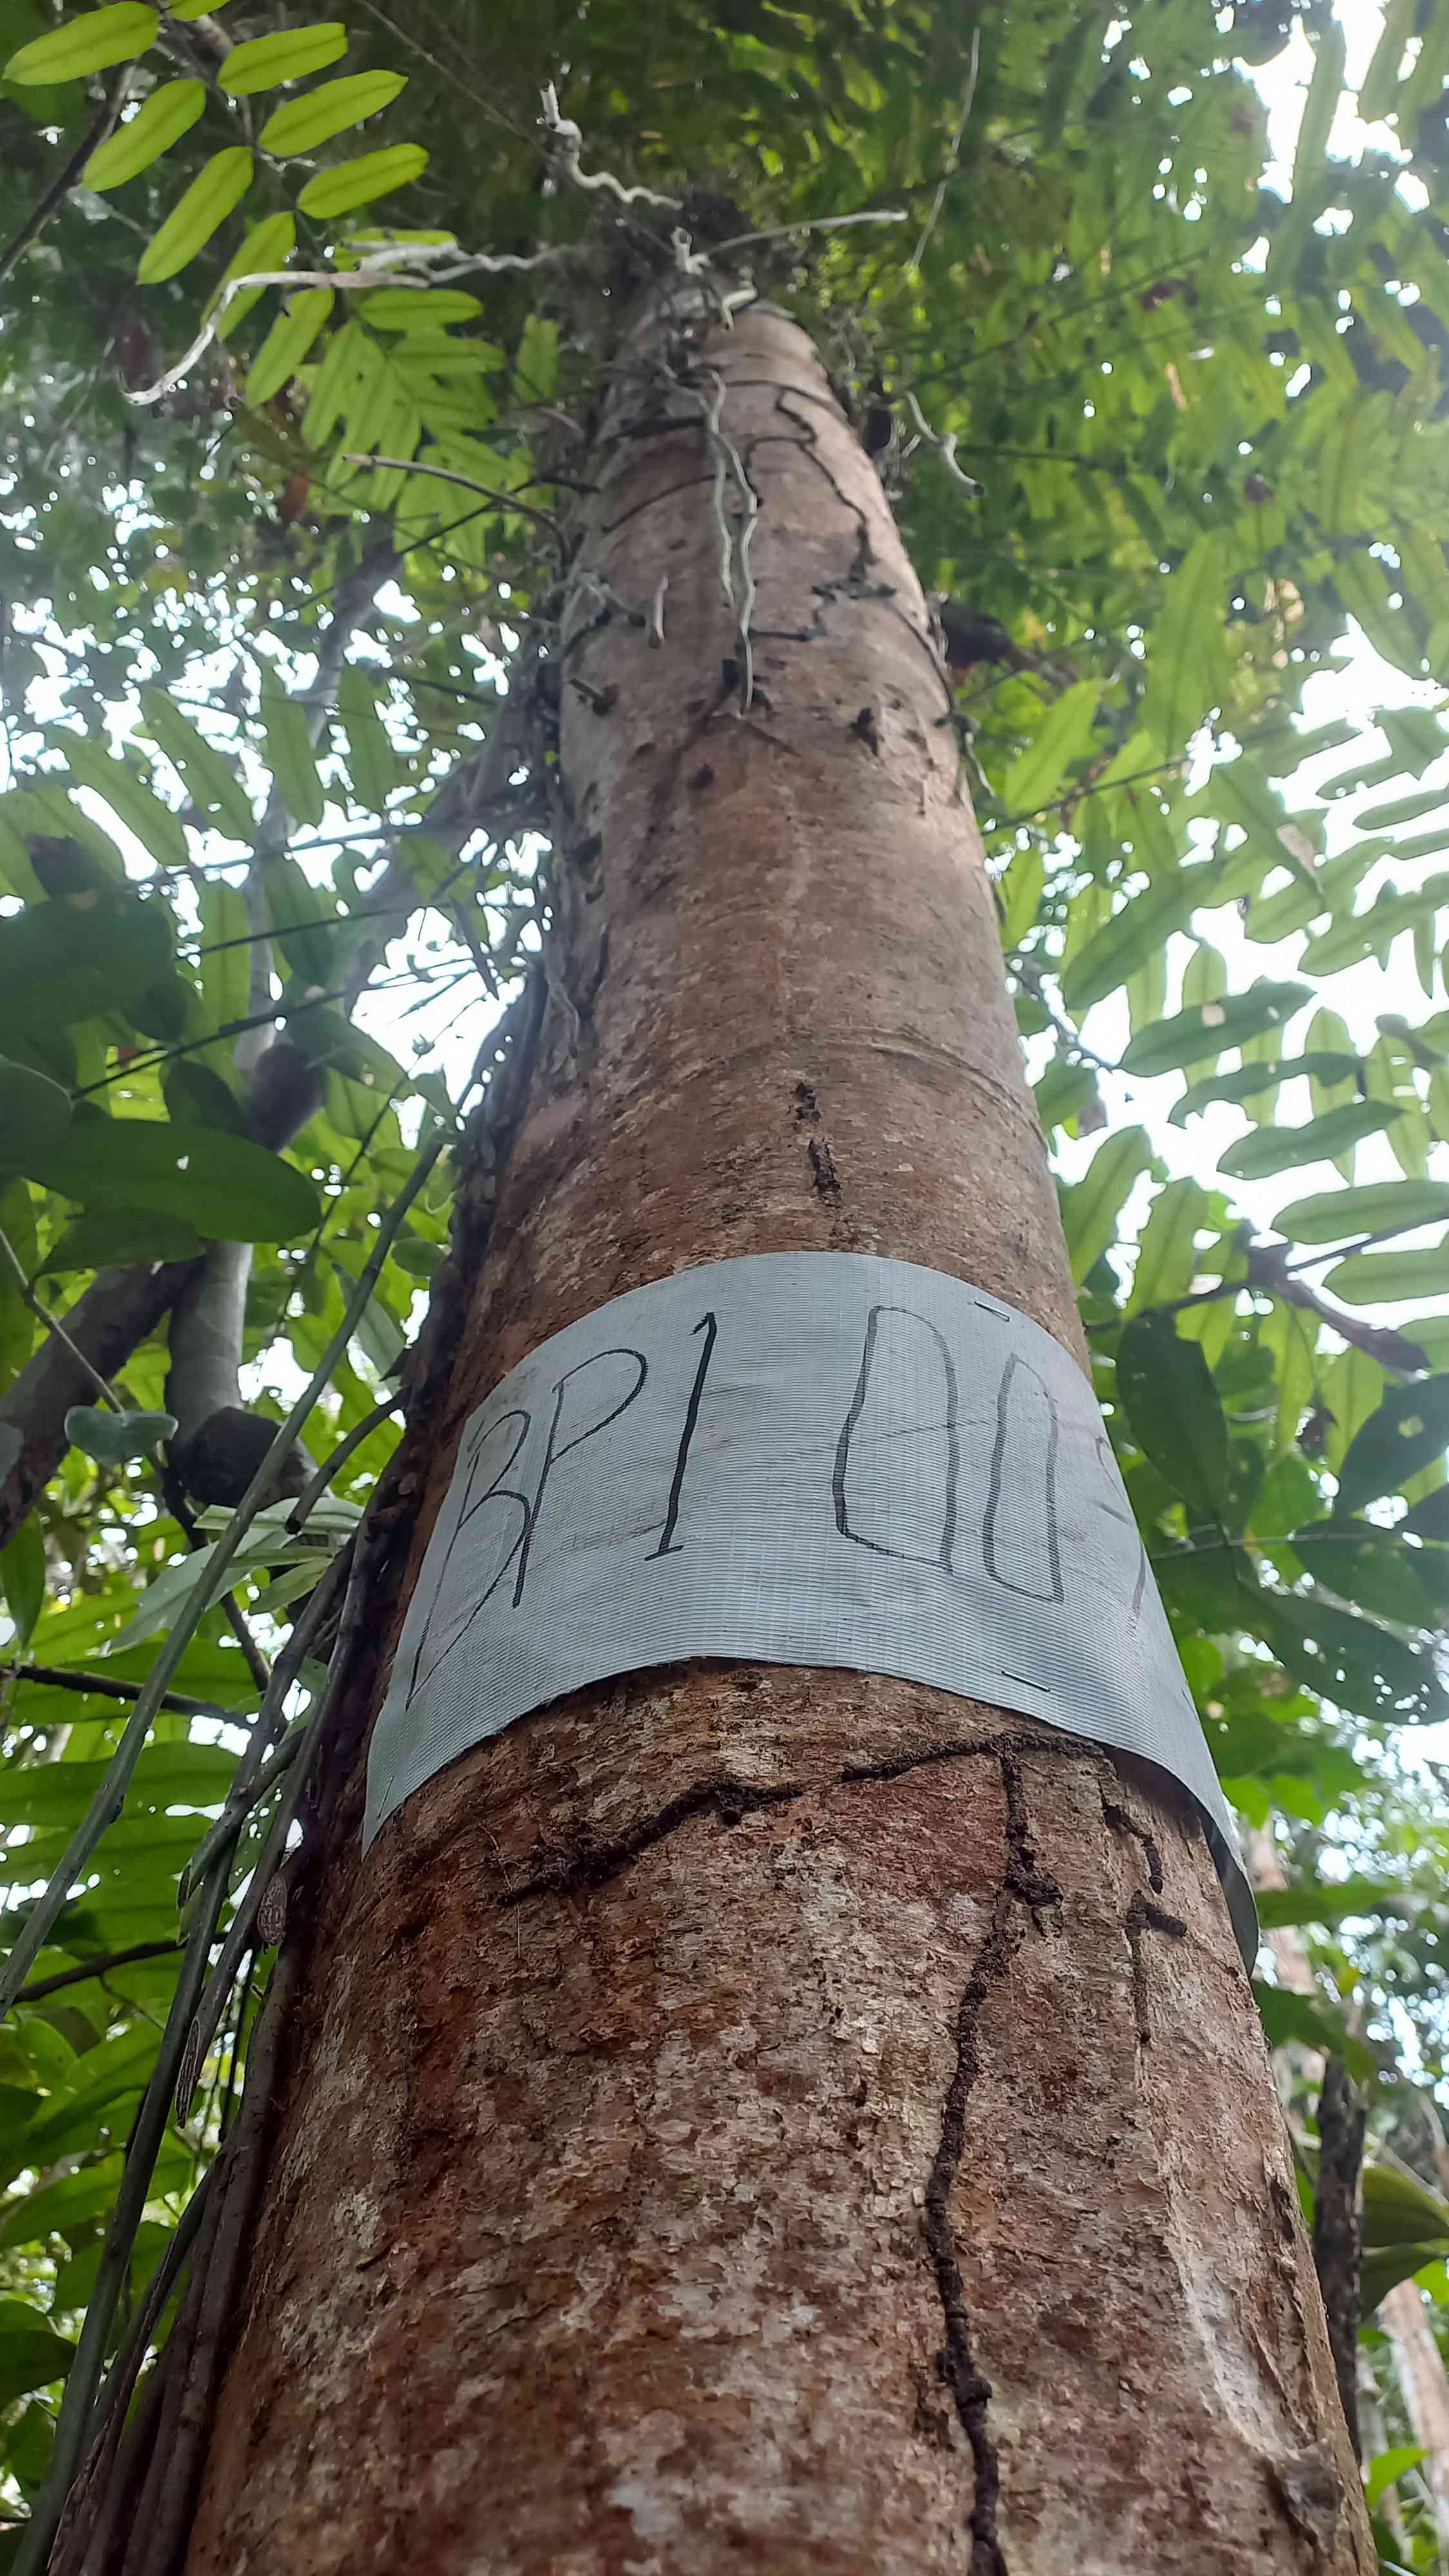 BPI 00